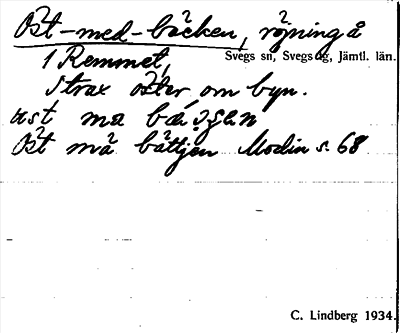 Öst-med-bäcken, röjning å
1 Remmet, Svegs sn, Svegs tg, Jämtl. län.
strax öster om byn.
öst mä bättjen Modin s. 68
C. Lindberg 1934.